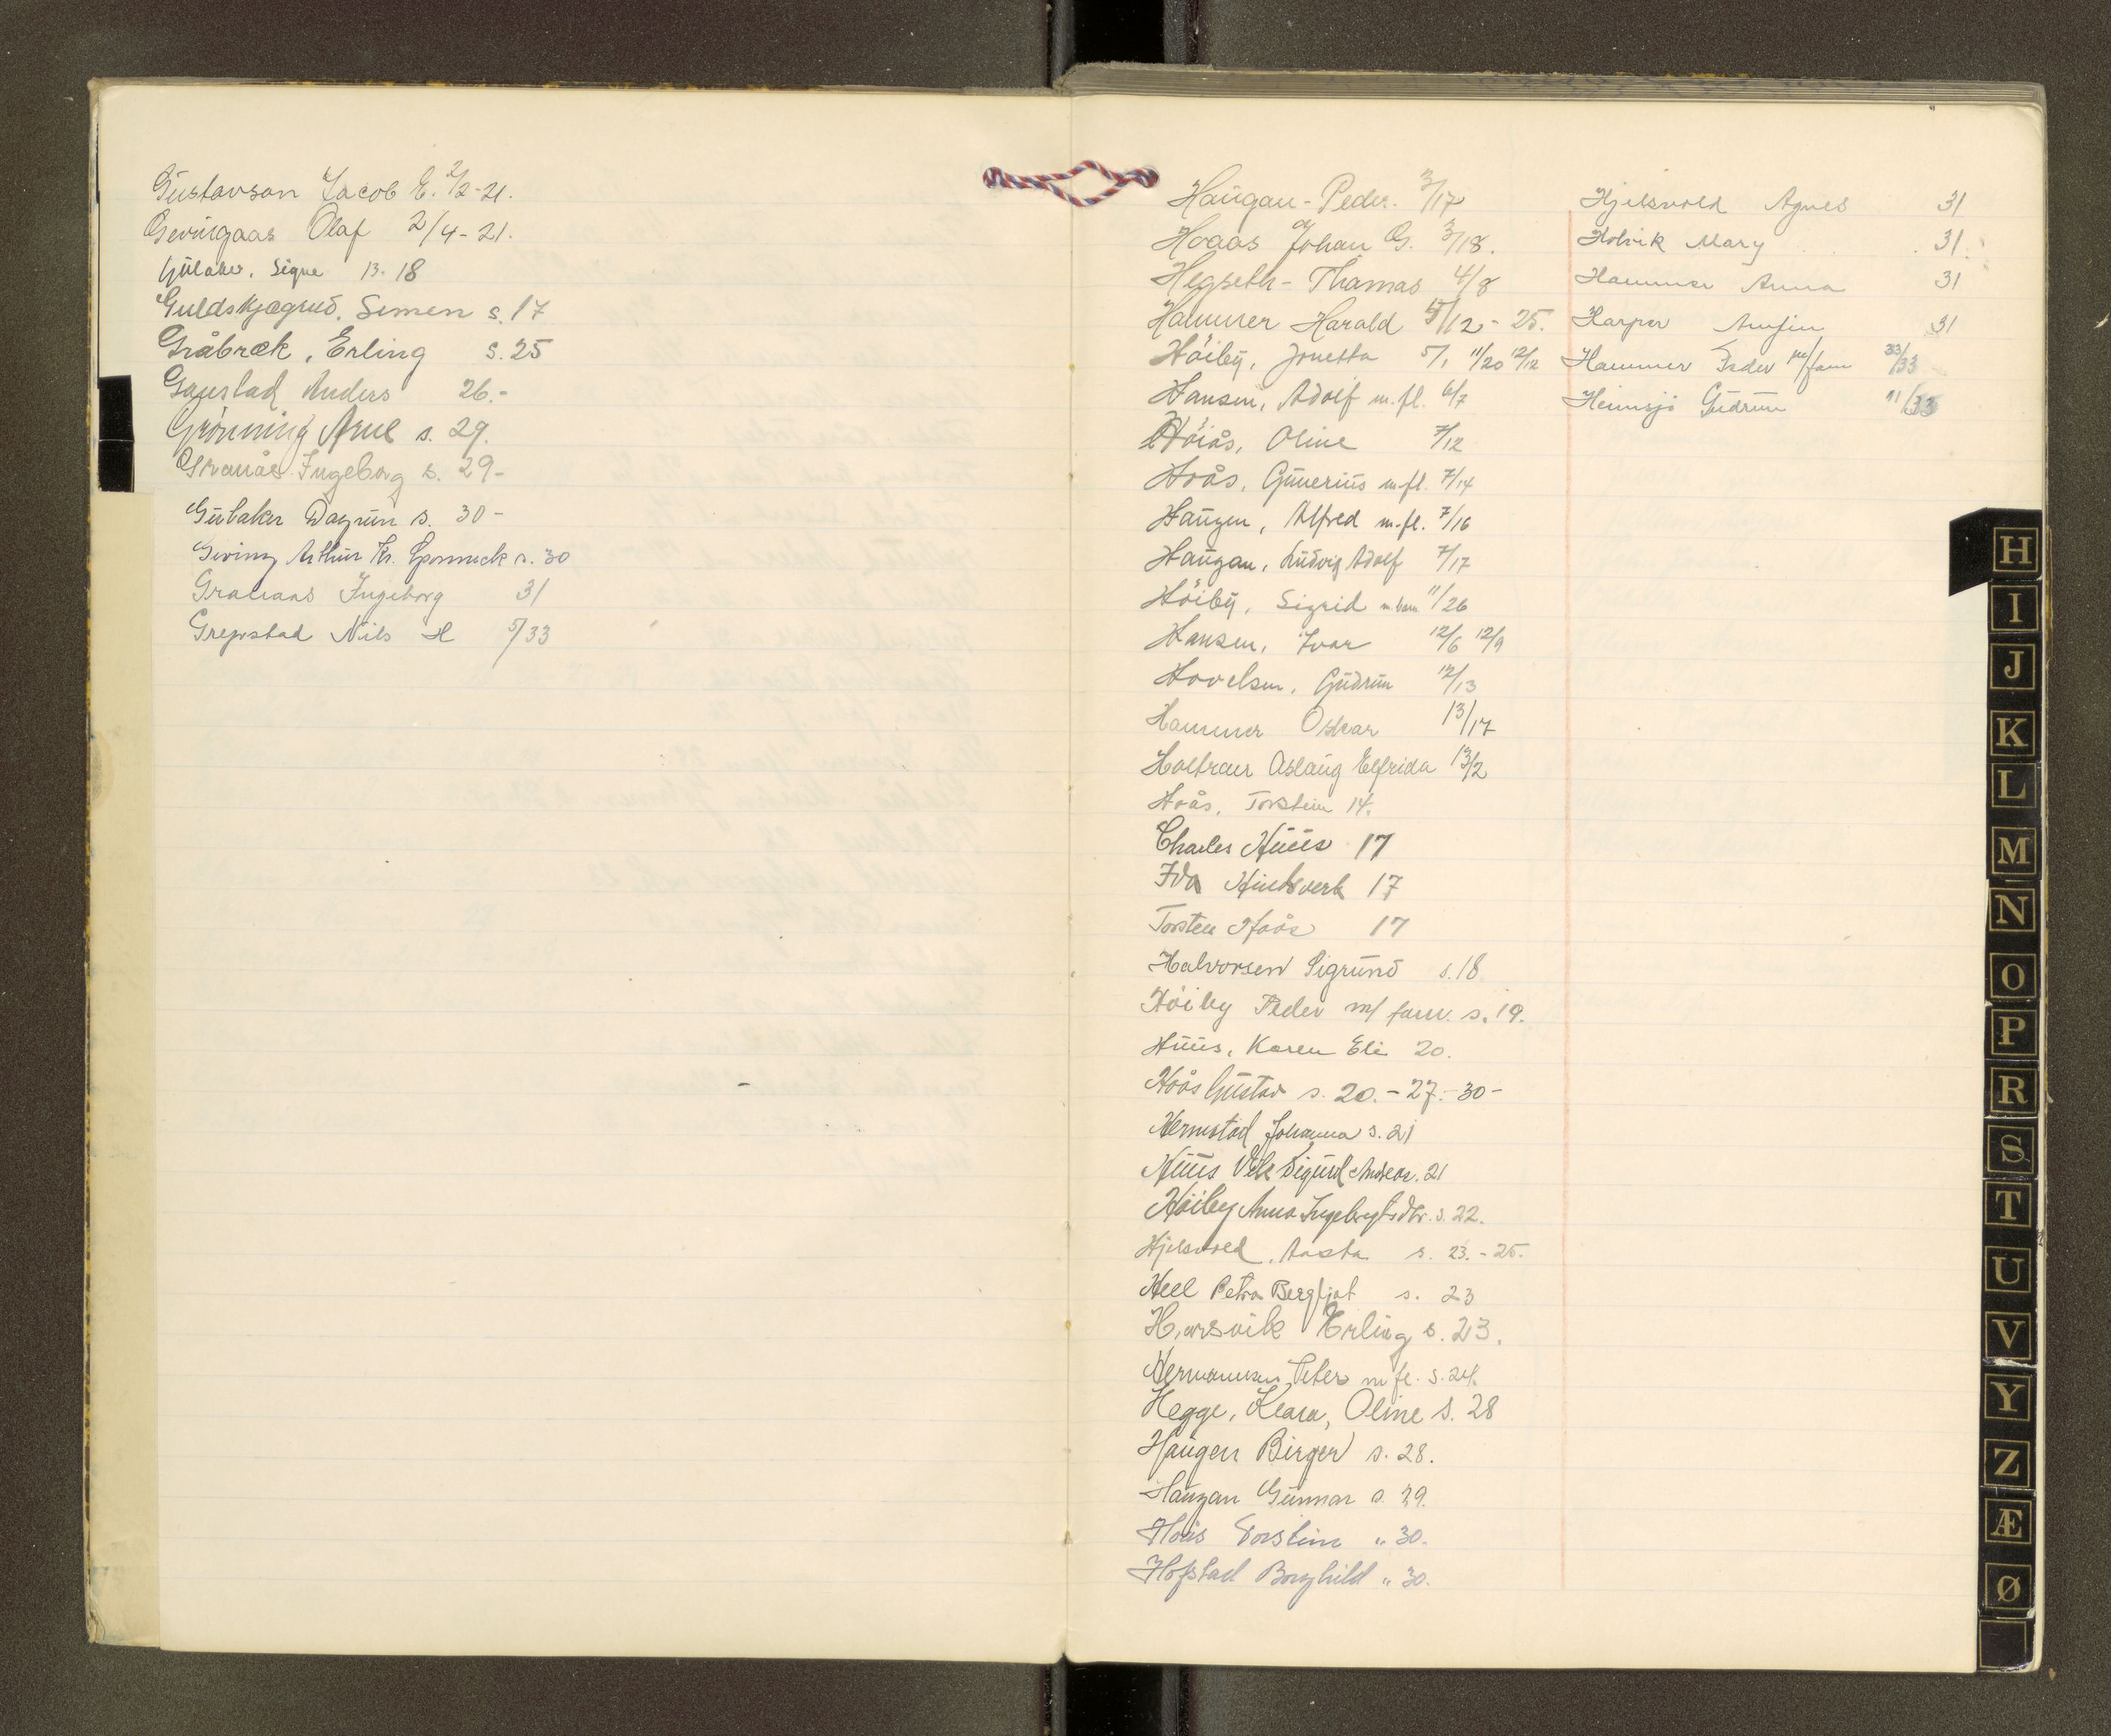 Gustavson Jacob E. 2/2-21.
Gevingaas Olaf 2/4-21.
Gulaker, Signe 13. 18
Guldskjægrud. Simen s. 17
Gråbræk, Erling s. 25
Gaustad Anders 26.-
Grönning Arne s. 29.
Granås Ingeborg s. 29-
Gulaker Dagrun s. 30-
Geving Arthur Kr. s. 30
Granaas Ingeborg 31
Grepstad Nils H 5/33
Haugan-Peder. 3/17
Hoaas Johan G. 3/18.
Hegseth-Thomas 4/8
Hammer Harald 5/12-25.
Höiby, Jonetta 5/1 11/20 12/12
Hansen, Adolf m.fl. 6/7
Höiås, Oline 7/12
Hoås, Gunerius m.fl. 7/14
Haugen, Alfred m.fl. 7/16
Haugan, Ludvig Adolf 7/17
Höiby, Sigrid m. barn 11/26
Hansen, Ivar 12/6 12/9
Hovelsen, Gudrun 12/13
Hammer Oskar 13/17
Holtraer Aslaug Elfrida 13/2
Hoås, Torstein 14.
Charles Huus 17
Ida 17
Torsten Hoås 17
Halvorsen Sigrund s. 18
Höiby Peder m/ fam. s. 19.
Huus, Karen Eli 20.
Hoås Gustav s. 20.-27.-30-
Hermstad Johanna s. 21
Huus Vik Sigurd Andreas. 21
Höiby Anna Ingeborg s. 22.
Hjelsvold, Aasta s. 23.-25.
Hell Petra Bergljot s. 23
Harsvik Erling s. 23.
Hermansen, Peter m fl. s. 24.
Hegge, Klara, Oline s. 28
Haugen Birger s. 28.
Haugan Gunnar s. 29.
Hoås Torstein " 30.
Hofstad Borghild " 30.
Hjelsvold Agnes 31
Holvik Mary 31.
Hammer Anna 31
Harper Arnfin 31
Hammer Peder m/fam 33/33
Heimsjö Gudrun 11/33
H
I
J
K
L
M
N
O
P
R
S
T
U
V
Y
Z
Æ
Ø